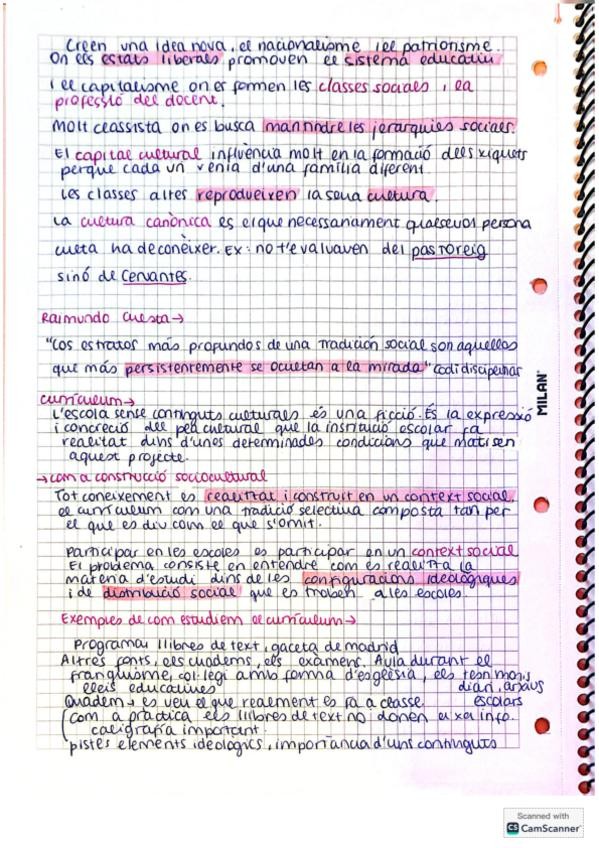 Creen una idea nova, el nacionalisme i el patriotisme.
On els estats liberals promoven el sistema educatiu
i el capitalisme on es formen les classes socials, i la
professió del docent.
Molt classista on es busca mantindre les jerarquies socials.
El capital cultural influència molt en la formació dels xiquets
perque cada un venia d'una família diferent.
Les classes altes reprodueixen la seua cultura.
La cultura canònica es el que necessariament qualsevol persona
culta ha de conèixer. Ex: no t'evaluaven del pastoreig
sinó de Cervantes.
Raimundo Cuesta→
"Los estratos más profundos de una tradición social son aquellos
que más persistentemente se ocultan a la mirada" codi disciplinar
MILAN
Currículum→
L'escola sense continguts culturals és una ficció. És la expressió
i concreció del pla cultural que la institució escolar fa
realitat dins d'unes determinades condicions que matisen
aquest projecte.
→com a construcció sociocultural
Tot coneixement es realitzat i construït en un context social,
el currículum com una tradició selectiva composta tan per
el que es diu com el que s'omit.
Participar en les escoles es participar en un context social
El problema consiste en entendre com es realitza la
materia d'estudi dins de les configuracions ideològiques
i de distribució social que es troben a les escoles.
Exemples de com estudiem el currículum→
Programar llibres de text, gaceta de madrid
Altres fonts, els cuaderns, els exàmens. Aula durant el
franquisme, col·legi amb forma d'església, els testimonis
lleis educatives diari, arxius
Quadern→ es veu el que realment es fa a classe. escolars
Com a pràctica els llibres de text no donen eixa info.
caligrafia important.
pistes elements ideològics, importància d'uns continguts
Scanned with
CS CamScanner